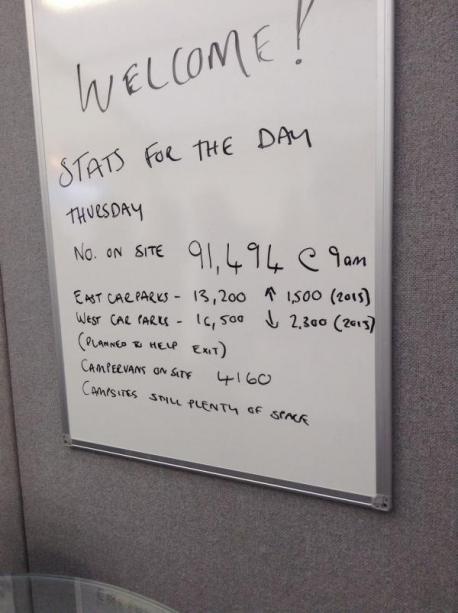 WELCOME!
STATS FOR THE DAY
THURSDAY
NO. ON SITE 91,494 @ 9am
EAST CAR PARKS - 13,200 ↑ 1,500 (2015)
WEST CAR PARKS - 16,500 ↓ 2,300 (2015)
(PLANNED TO HELP EXIT)
CAMPERVANS ON SITE 4160
CAMPSITES STILL PLENTY OF SPACE